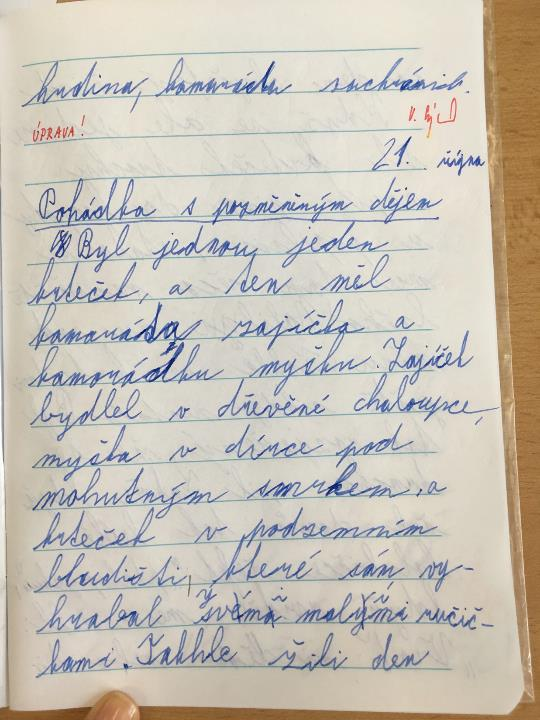 hrdina, kamaráda zachránil.
ÚPRAVA!
21. října
Pohádka s pozměněným dějem
Byl jednou jeden
krteček, a ten měl
kamaráda zajíčka a
kamarádku myšku. Zajíček
bydlel v dřevěné chaloupce,
myška v dírce pod
mohutným smrkem, a
krteček v podzemním
bludišti, které sám vy-
hrabal svými malými ručič-
kami. Takhle žili den